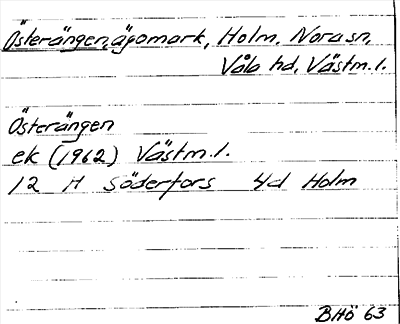 Österängen, ägomark, Holm, Nora sn,
Våla hd, Västm.l.
Österängen
ek (1962) Västm.l.
12 H Söderfors 4d Holm
BHö 63